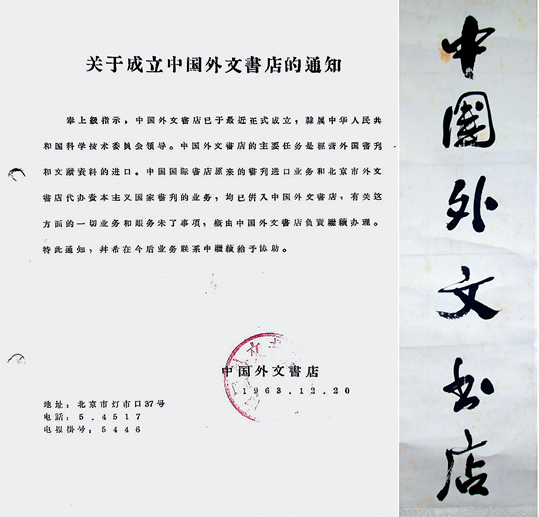 关于成立中国外文書店的通知
奉上級指示，中国外文書店已于最近正式成立，隸属中华人民共
和国科学技术委員会領导。中国外文書店的主要任务是經营外国書刊
和文献資料的进口。中国国际書店原来的書刊进口业务和北京市外文
書店代办資本主义国家書刊的业务，均已併入中国外文書店，有关这
方面的一切业务和賬务未了事項，概由中国外文書店負責繼續办理。
特此通知，幷希在今后业务联系中繼續給予协助。
中国外文書店
1963.12.20
地址：北京市灯市口37号
电話：5.4517
电报掛号：5446
中
国
外
文
书
店